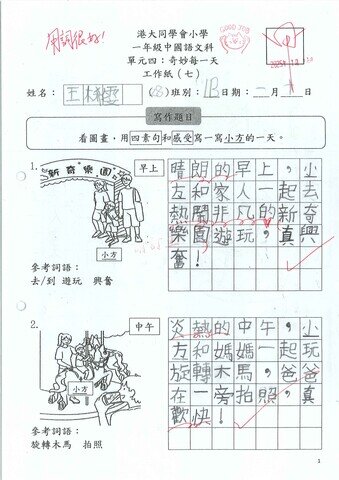 用詞很好！
GOOD JOB
港大同學會小學
一年級中國語文科
單元四：奇妙每一天
工作紙（七）
班別：1B 日期：二月
姓名：王
寫作題目
看圖畫，用四素句和感受寫一寫小方的一天。
1.
早上
新奇樂園
小方
參考詞語：
去/到 遊玩 興奮
晴朗的早上，小
友和家人一起去
熱鬧非凡的新奇
樂園遊玩，真興
奮！
2.
中午
小方
參考詞語：
旋轉木馬 拍照
炎熱的中午，小
方和媽媽一起玩
旋轉木馬，爸爸
在一旁拍照，真
歡快！
1